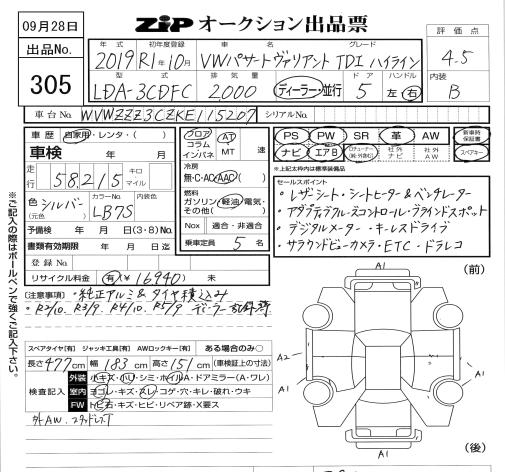 09月28日
ZIP オークション出品票
出品No.
305
評価点
4.5
内装
B
年式 初年度登録 車名 グレード
2019 R1年10月 VWパサートヴァリアント TDI ハイライン
型式 排気量 ドア ハンドル
LDA-3CDFC 2,000 ディーラー・並行 5 左・右
車台No. WVWZZZ3CZKE115207 シリアルNo.
車歴 自家用・レンタ・( )
車検 年 月
走行 58,215 キロ マイル
色(元色) シルバー カラーNo. LB7S 内装色
予備検 年 月 日(3・8)No.
書類有効期限 年 月 日迄
登録No.
リサイクル料金 有(¥16940) 未
フロア コラム インパネ AT MT 速
冷房
無・C・AC・AAC( )
燃料
ガソリン・軽油・電気・その他( )
Nox 適合・非適合
乗車定員 5 名
PS PW SR 革 AW 新車時保証書
ナビ エアB 社外ナビ 社外AW スペアキー
※上記太枠内は標準装備品
セールスポイント
・レザーシート・シートヒーター&ベンチレーター
・アダプティブクルーズコントロール・ブラインドスポット
・デジタルメーター・キーレスドライブ
・サラウンドビューカメラ・ETC・ドラレコ
※ご記入の際はボールペンで強くご記入下さい。
[注意事項]・純正アルミ&タイヤ積込み
・R2/10. R3/9. R4/10. R5/9 ディーラー記録簿
スペアタイヤ[有] ジャッキ工具[有] AWロックキー[有] ある場合のみ○
長さ477cm 幅183cm 高さ151cm (車検証上の寸法)
検査記入
外装 小キズ・凹・シミ・ホイルA・ドアミラー(A・ワレ)
室内 ヨゴレ・キズ・スレ・コゲ・穴・キレ・破れ・ウキ
FW 飛石・キズ・ヒビ・リペア跡・X要ス
外AW. スタッドレスT
A1
(前)
A2
A1
A1
A1
A1
(後)